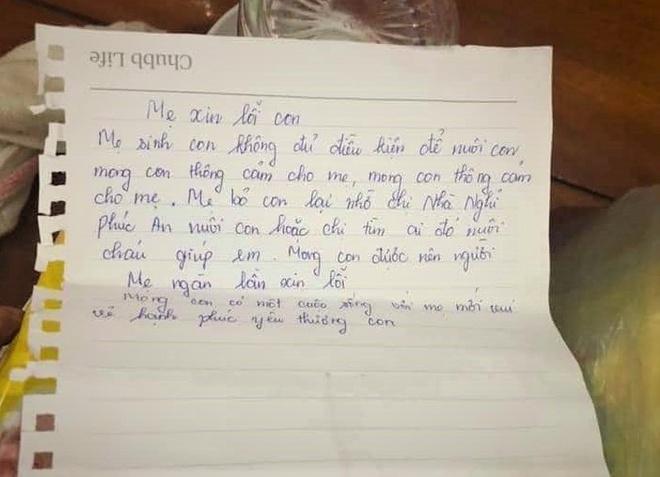 Chubb Life
Mẹ xin lỗi con
Mẹ sinh con không đủ điều kiện để nuôi con
mong con thông cảm cho mẹ, mong con thông cảm
cho mẹ. Mẹ bỏ con lại nhờ chị Nhà Nghỉ
Phúc An nuôi con hoặc chị tìm ai đó nuôi
cháu giúp em. Mong con được nên người
Mẹ ngàn lần xin lỗi
Mong con có một cuộc sống bên mẹ mới vui
vẻ hạnh phúc yêu thương con